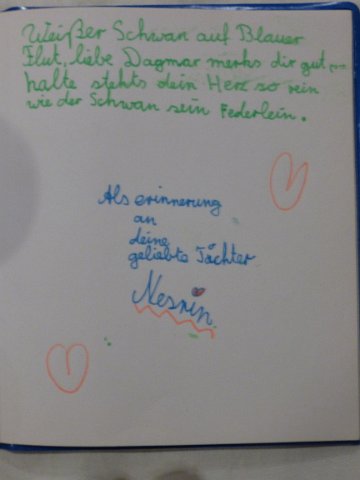 Weißer Schwan auf Blauer
Flut, liebe Dagmar merks dir gut
halte stehts dein Herz so rein
wie der Schwan sein Federlein.
Als erinnerung
an
deine
geliebte Töchter
Nesrin